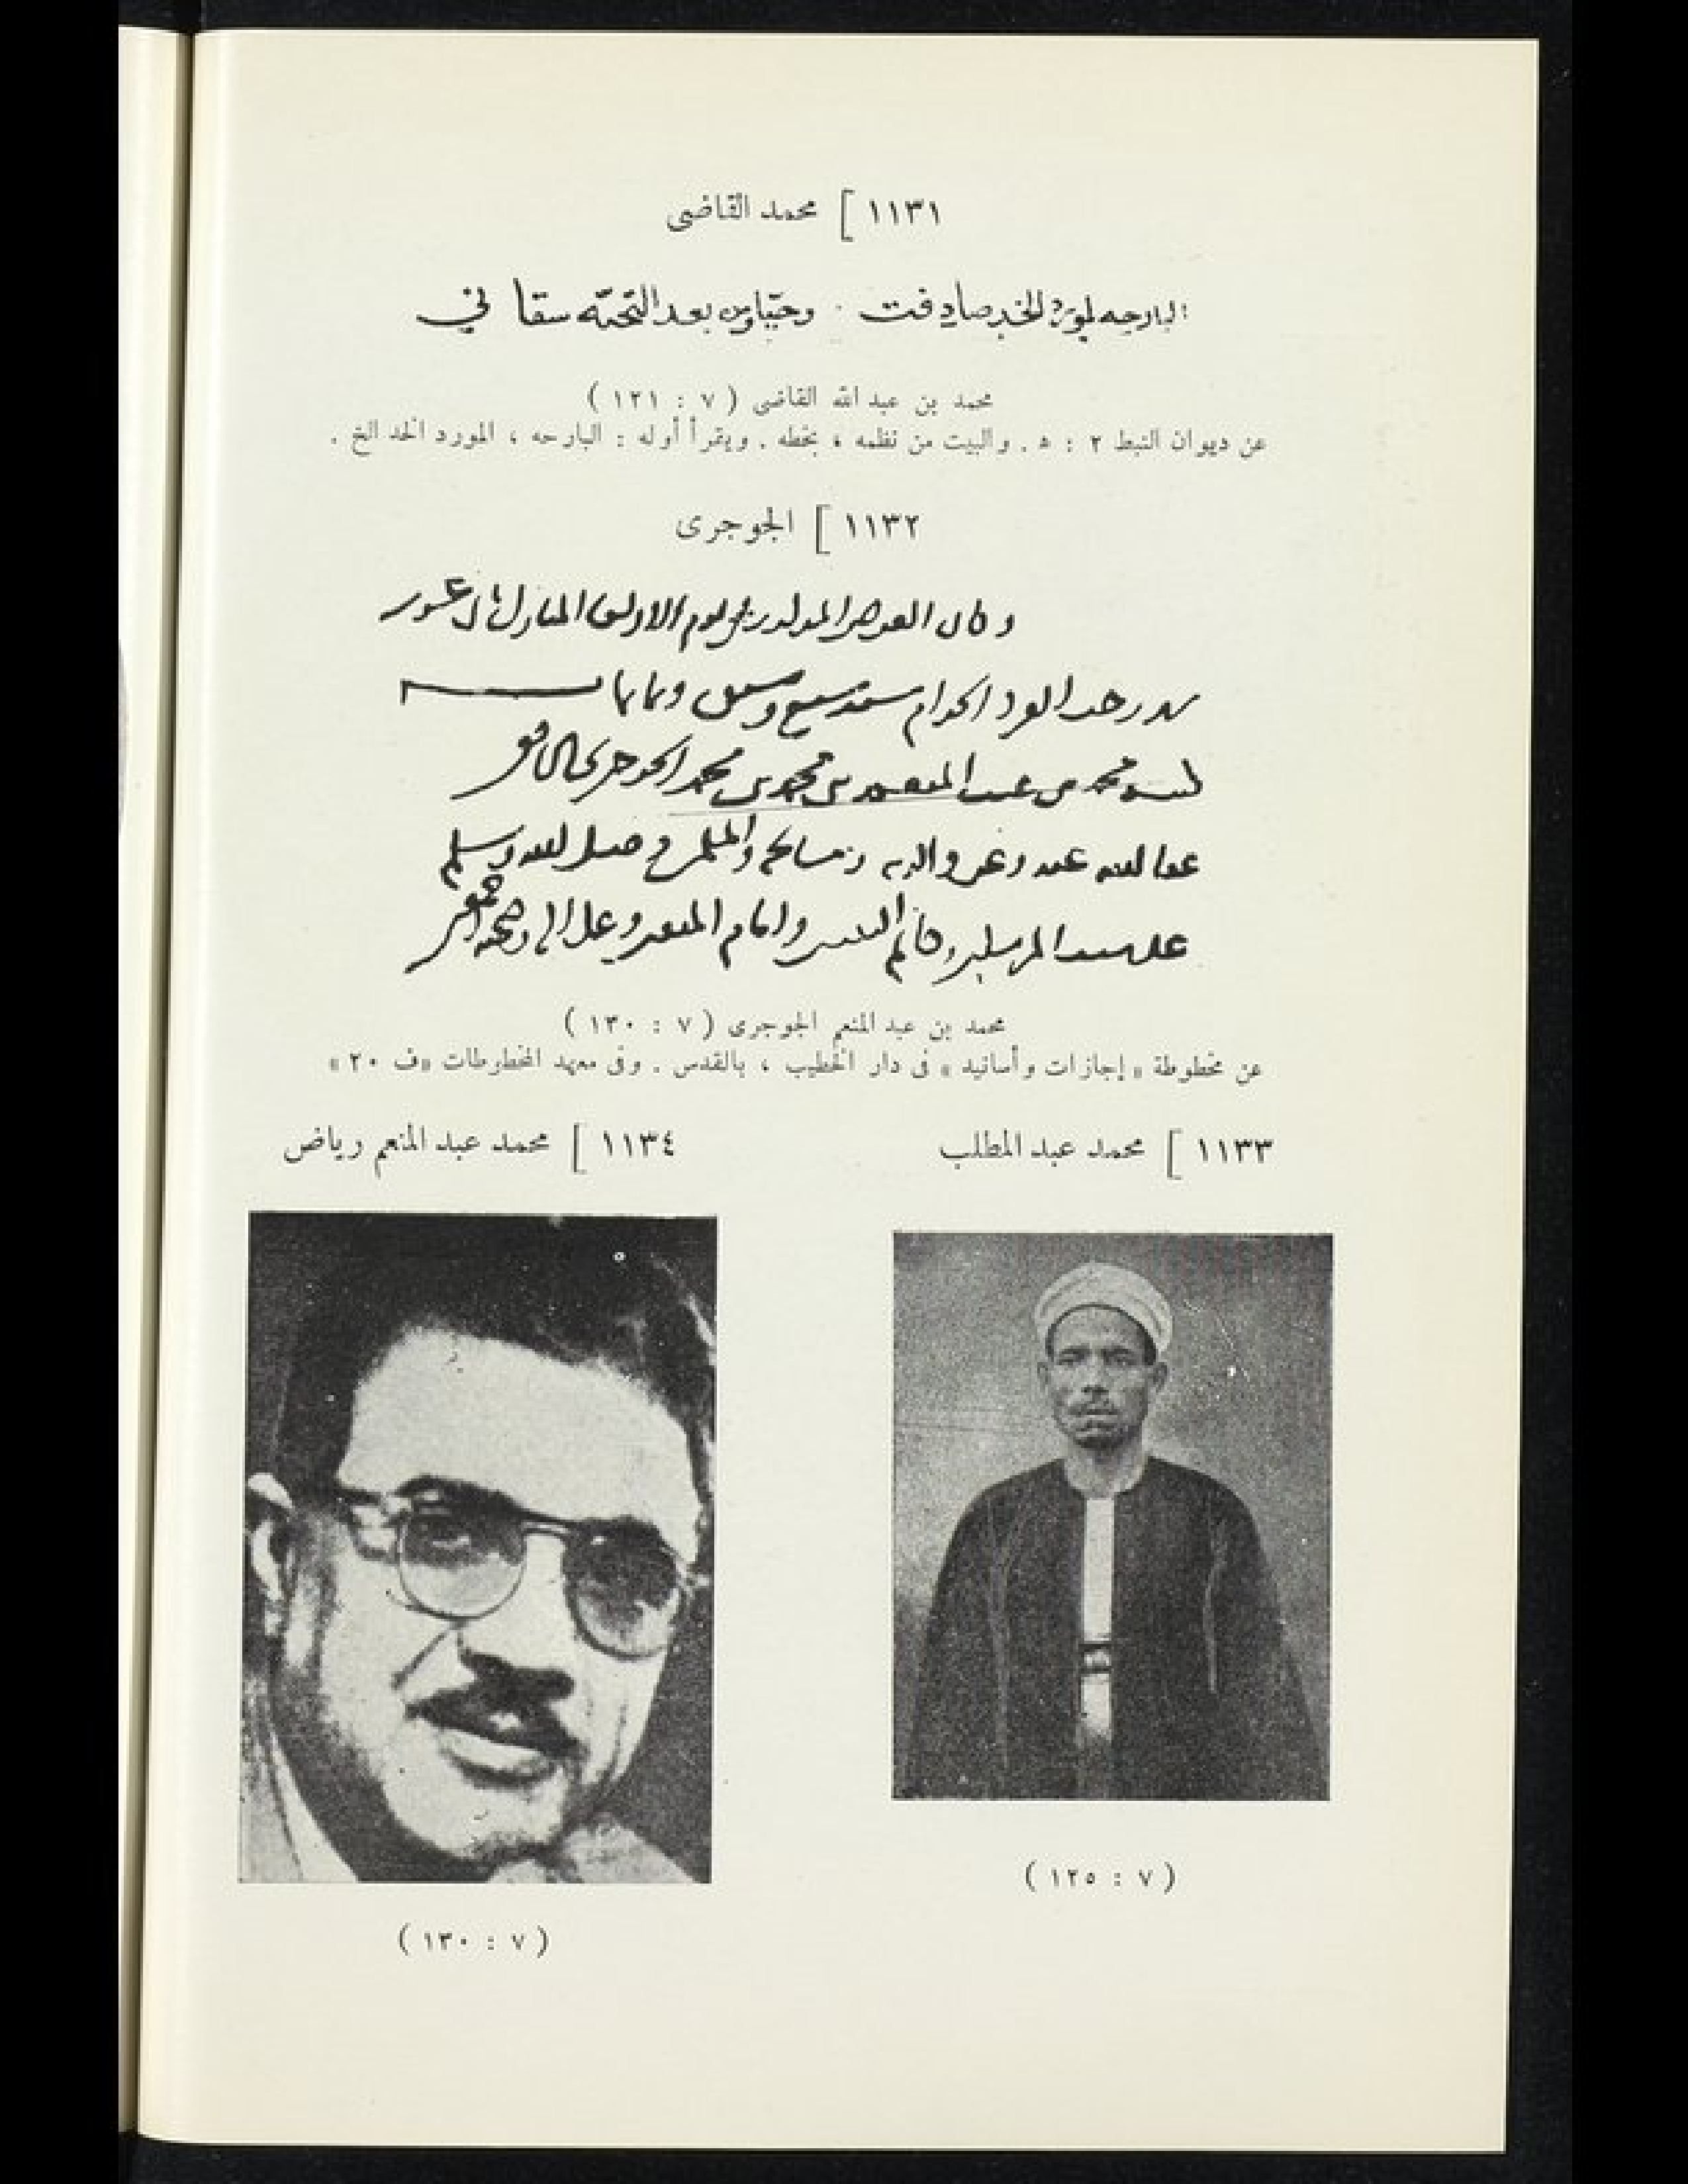 ١١٣١ ] محمد القاضى
البارحه لمورد الخد صادفت وحيّاوين بعد التحيّه سقاني
محمد بن عبد الله القاضى ( ٧ : ١٢١ )
عن ديوان النبط ٢ : ٥ . والبيت من نظمه ، بخطه . ويقرأ أوله : البارحه ، المورد الخد الخ .
١١٣٢ ] الجوجرى
وكان العرض المذكور فى يوم الاثنين المبارك ثانى عشر
شهر رجب الفرد الحرام سنة سبع وستين وثمانمائة
كتبه محمد بن عبد المنعم بن محمد بن محمد الجوجرى الشافعى
عفا الله عنه وعن والديه ومشايخه والمسلمين وصلى الله وسلم
على سيد المرسلين وخاتم النبيين وإمام المتقين وعلى آله وصحبه أجمعين
محمد بن عبد المنعم الجوجرى ( ٧ : ١٣٠ )
عن مخطوطة « إجازات وأسانيد » فى دار الخطيب ، بالقدس . وفى معهد المخطوطات « ف ٢٠ »
١١٣٣ ] محمد عبد المطلب
( ٧ : ١٢٥ )
١١٣٤ ] محمد عبد المنعم رياض
( ٧ : ١٣٠ )